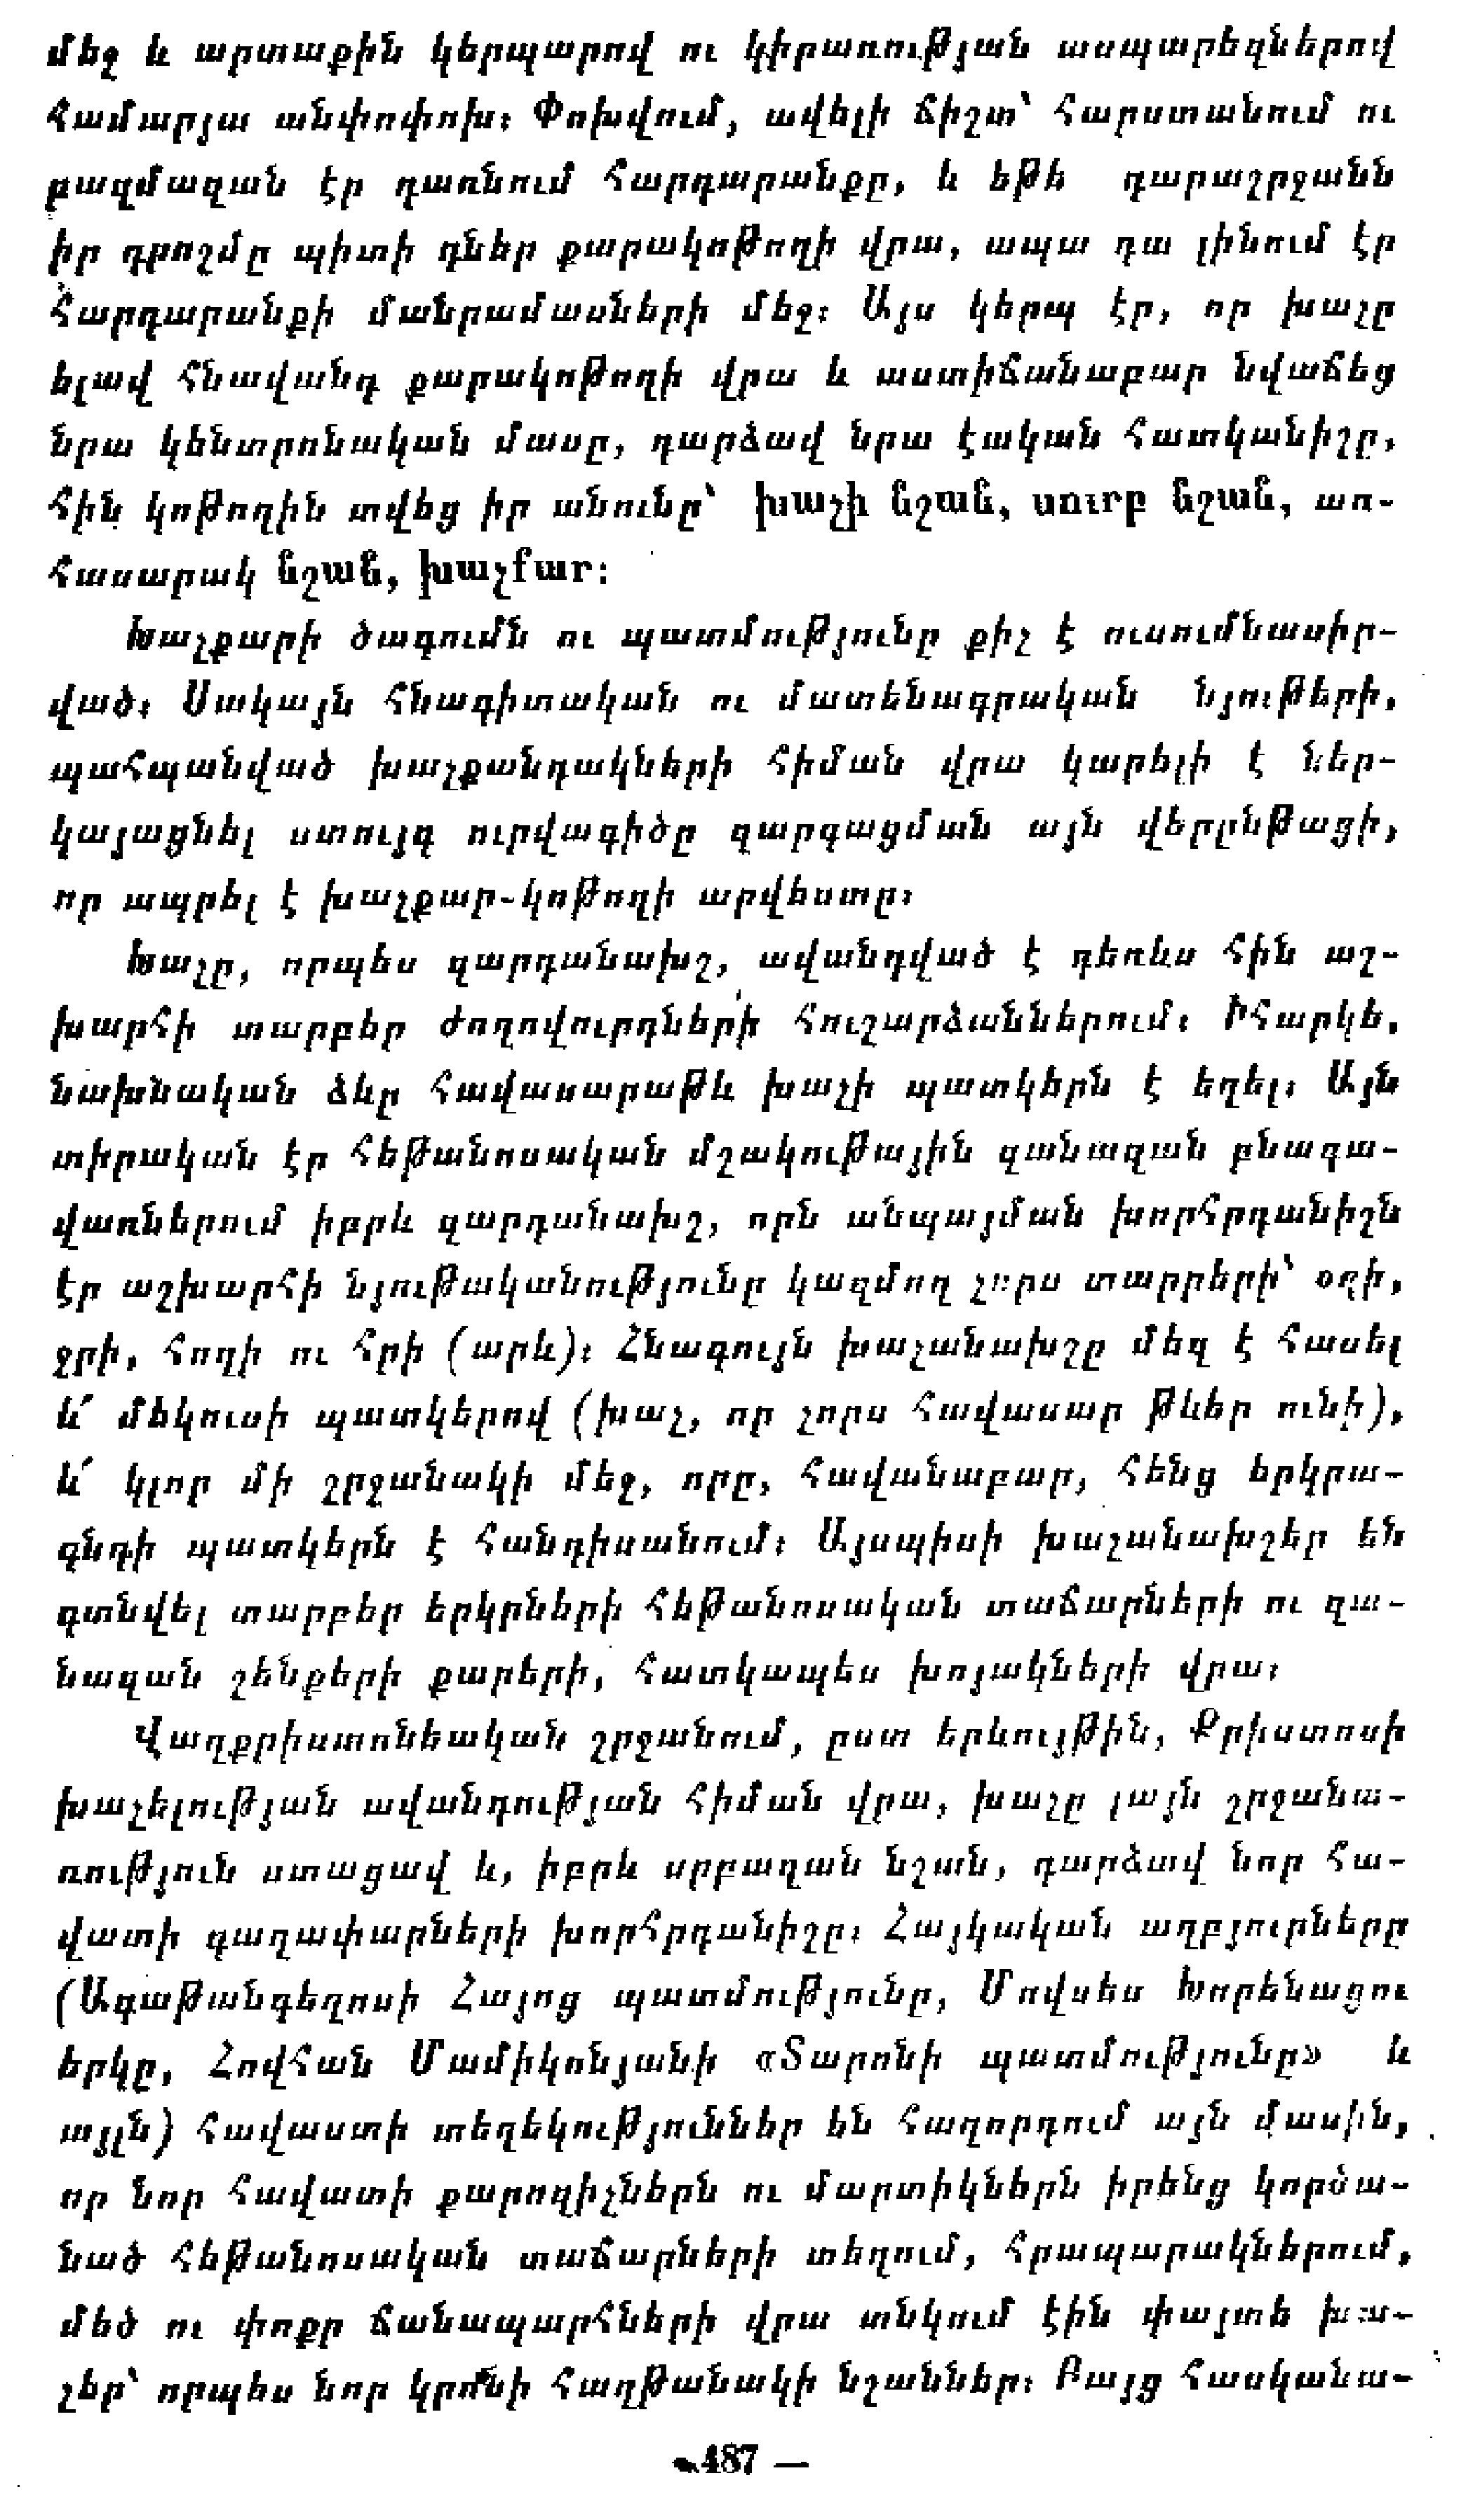 մեջ և արտաքին կերպարով ու կիրառության ասպարեզներով
համարյա անփոփոխ։ Փոխվում, ավելի ճիշտ՝ հարստանում ու
բազմազան էր դառնում հարդարանքը, և եթե դարաշրջանն
իր դրոշմը պիտի դներ քարակոթողի վրա, ապա դա լինում էր
հարդարանքի մանրամասների մեջ։ Այս կերպ էր, որ խաչը
ելավ հնավանդ քարակոթողի վրա և աստիճանաբար նվաճեց
նրա կենտրոնական մասը, դարձավ նրա էական հատկանիշը,
հին կոթողին տվեց իր անունը՝ խաչի նշան, սուրբ նշան, առ-
հասարակ նշան, խաչքար։
Խաչքարի ծագումն ու պատմությունը քիչ է ուսումնասիր-
ված։ Սակայն հնագիտական ու մատենագրական նյութերի,
պահպանված խաչքանդակների հիման վրա կարելի է ներ-
կայացնել ստույգ ուրվագիծը զարգացման այն վերընթացի,
որ ապրել է խաչքար-կոթողի արվեստը։
Խաչը, որպես զարդանախշ, ավանդված է դեռևս հին աշ-
խարհի տարբեր ժողովուրդների հուշարձաններում։ Իհարկե,
նախնական ձևը հավասարաթև խաչի պատկերն է եղել։ Այն
տիրական էր հեթանոսական մշակութային զանազան բնագա-
վառներում իբրև զարդանախշ, որն անպայման խորհրդանիշն
էր աշխարհի նյութականությունը կազմող չորս տարրերի՝ օդի,
ջրի, հողի ու հրի (արև)։ Հնագույն խաչանախշը մեզ է հասել
և՛ մեկուսի պատկերով (խաչ, որ չորս հավասար թևեր ունի),
և՛ կլոր մի շրջանակի մեջ, որը, հավանաբար, հենց երկրա-
գնդի պատկերն է հանդիսանում։ Այսպիսի խաչանախշեր են
գտնվել տարբեր երկրների հեթանոսական տաճարների ու զա-
նազան շենքերի քարերի, հատկապես խոյակների վրա։
Վաղքրիստոնեական շրջանում, ըստ երևույթին, Քրիստոսի
խաչելության ավանդության հիման վրա, խաչը լայն շրջանա-
ռություն ստացավ և, իբրև սրբազան նշան, դարձավ նոր հա-
վատի գաղափարների խորհրդանիշը։ Հայկական աղբյուրները
(Ագաթանգեղոսի Հայոց պատմությունը, Մովսես Խորենացու
երկը, Հովհան Մամիկոնյանի «Տարոնի պատմությունը» և
այլն) հավաստի տեղեկություններ են հաղորդում այն մասին,
որ նոր հավատի քարոզիչներն ու մարտիկներն իրենց կործա-
նած հեթանոսական տաճարների տեղում, հրապարակներում,
մեծ ու փոքր ճանապարհների վրա տնկում էին փայտե խա-
չեր՝ որպես նոր կրոնի հաղթանակի նշաններ։ Բայց հասկանա-
487 —